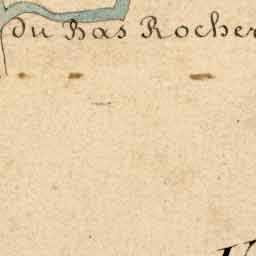 du bas Rocher